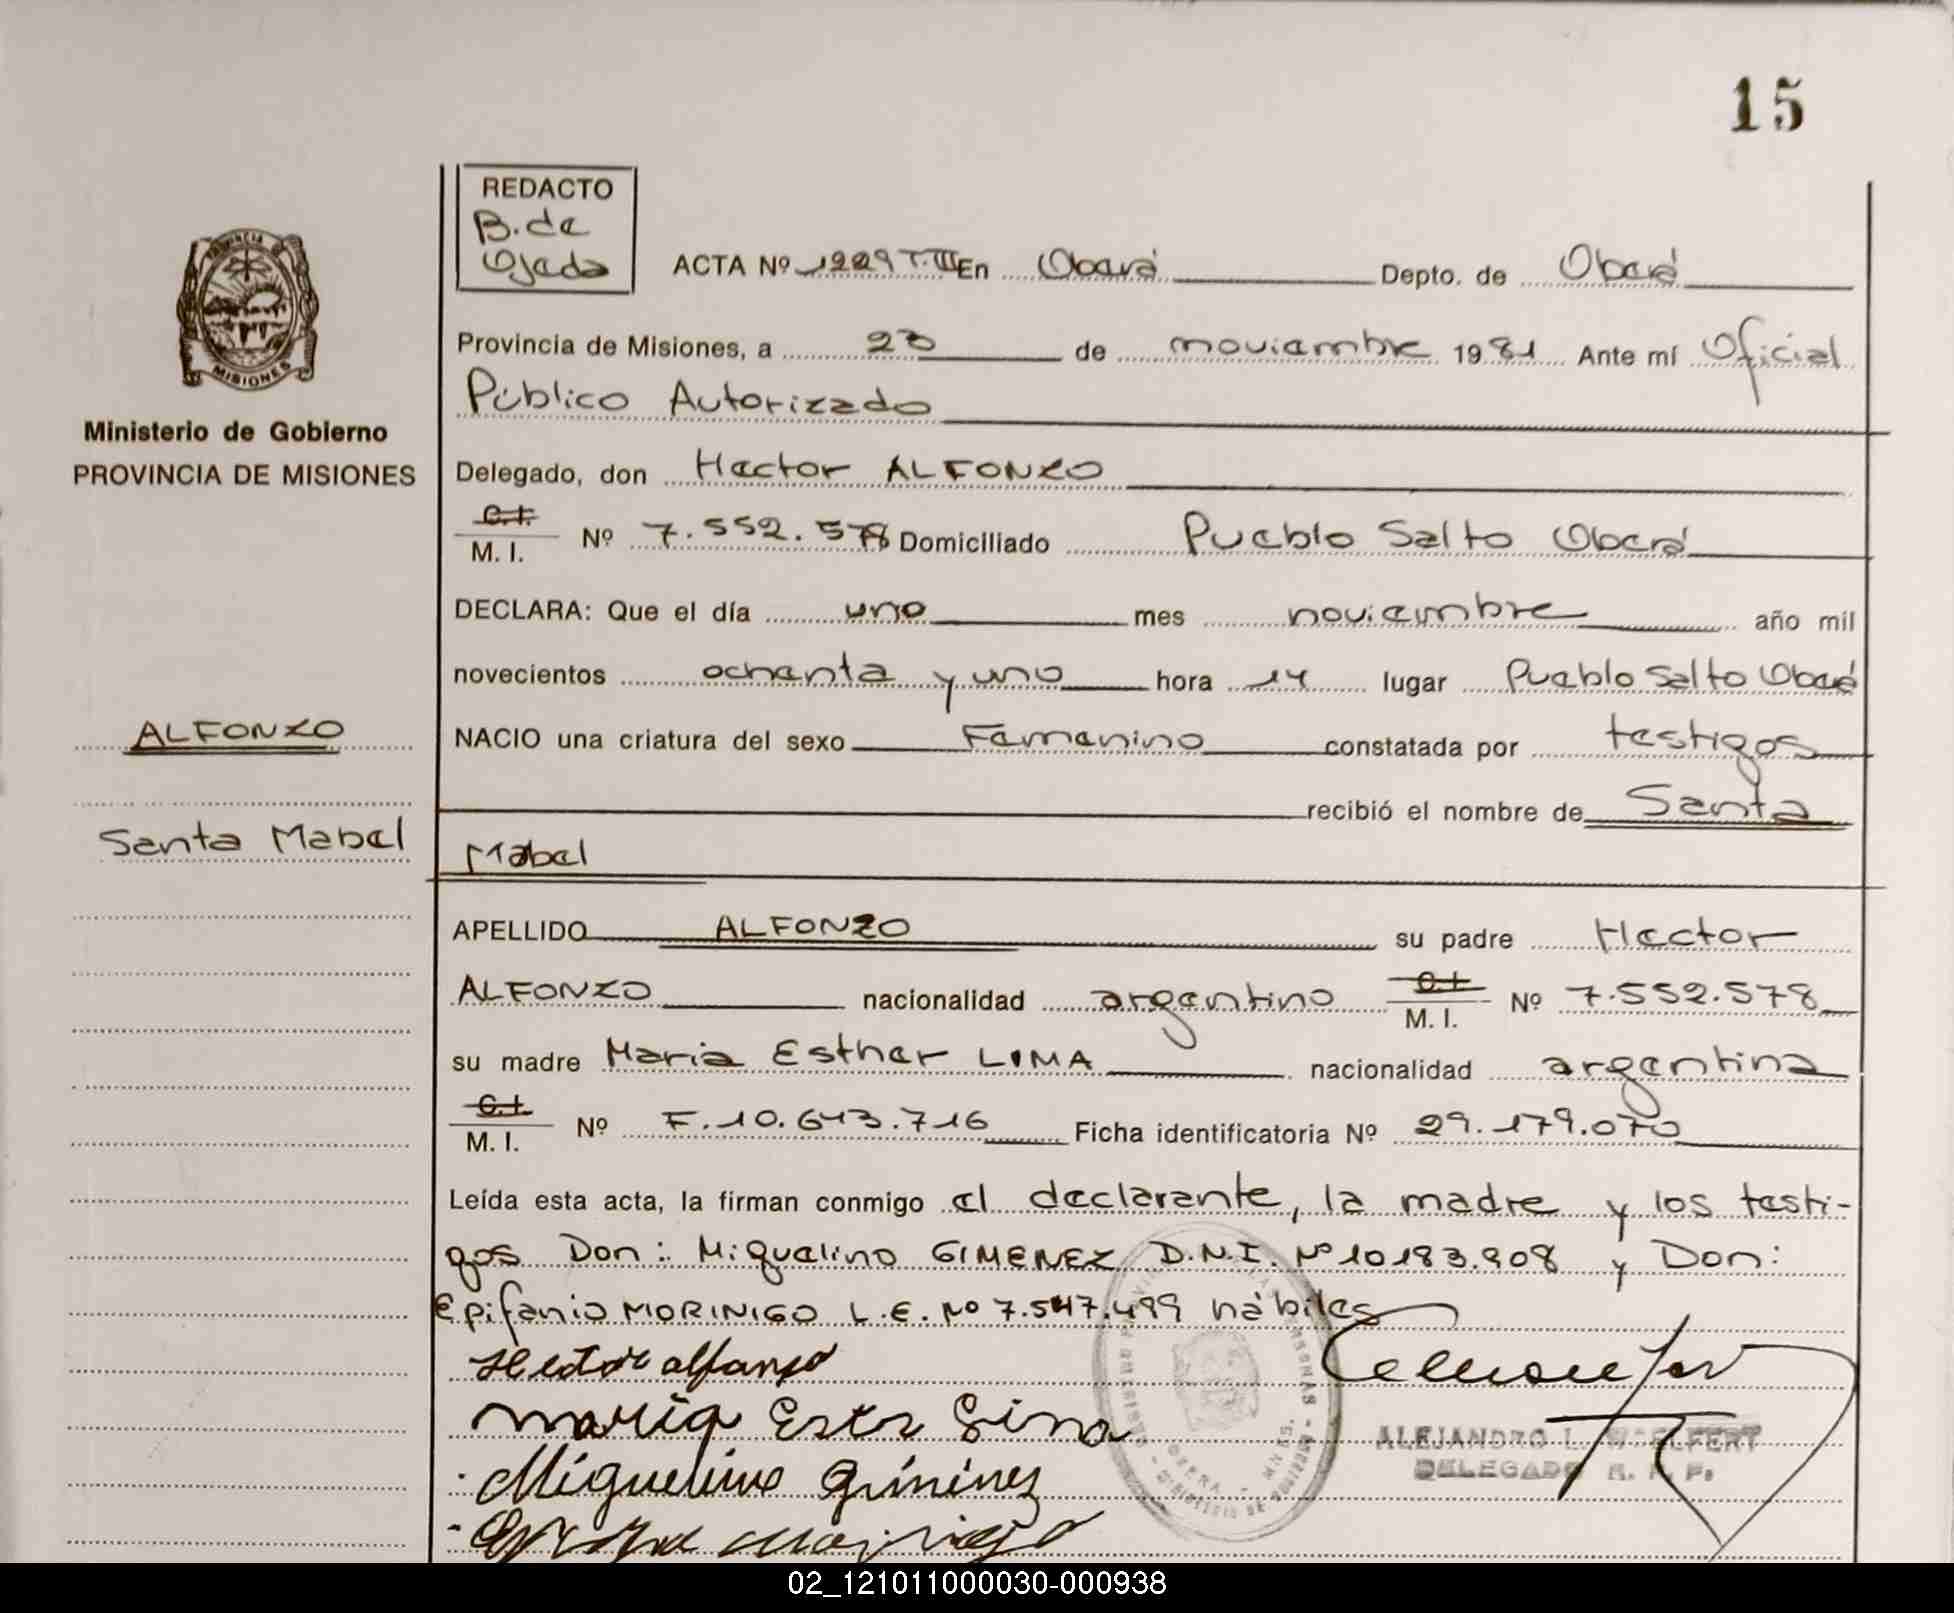 15
REDACTO
B. de
Ojeda
ACTA Nº 1229 T. III En Oberá Depto. de Oberá
Provincia de Misiones, a 20 de noviembre 1981 Ante mí Oficial
Público Autorizado
Delegado, don Hector ALFONZO
C.I.
M. I. Nº 7.552.578 Domiciliado Pueblo Salto Oberá
DECLARA: Que el día uno mes noviembre año mil
novecientos ochenta y uno hora 14 lugar Pueblo Salto Oberá
NACIO una criatura del sexo Femenino constatada por testigos
recibió el nombre de Santa
Mabel
APELLIDO ALFONZO su padre Hector
ALFONZO nacionalidad argentino C.I. M. I. Nº 7.552.578
su madre Maria Esther LIMA nacionalidad argentina
C.I.
M. I. Nº F.10.643.716 Ficha identificatoria Nº 29.179.070
Leída esta acta, la firman conmigo el declarante, la madre y los testi-
gos Don: Miguelino GIMENEZ D.N.I. Nº 10183.908 y Don:
Epifanio MORINIGO L.E. Nº 7.547.499 hábiles
Hector alfonso
maria Ester Lima
Miguelino Giminez
ALEJANDRO L. WOELFERT
DELEGADO R. P. P.
PROVINCIA DE
MISIONES
Ministerio de Gobierno
PROVINCIA DE MISIONES
ALFONZO
Santa Mabel
02_121011000030-000938